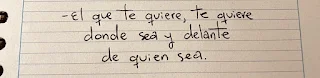 -El que te quiere, te quiere
donde sea y delante
de quien sea.